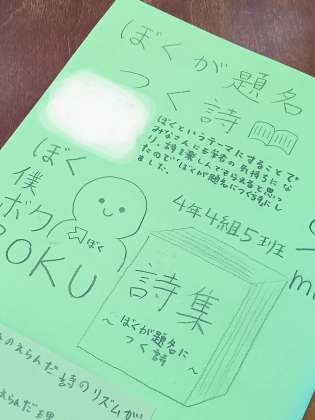 ぼくが題名
つく詩
ぼくというテーマにすることで
みなさんにも筆者の気持ちにな
り、詩を楽しんでもらえると思っ
たので「ぼくが題名につく詩」にし
ました。
ぼく
僕
ボク
BOKU
ぼく
4年4組5班
詩集
〜ぼくが題名に
つく詩〜
のえらんだ詩のリズムが
えらんだ理